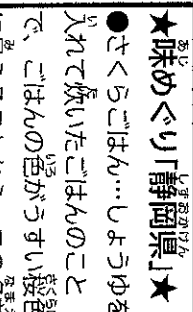 ★味めぐり「静岡県」★
●さくらごはん…しょうゆを
入れて炊いたごはんのこと
で、ごはんの色がうすい桜色